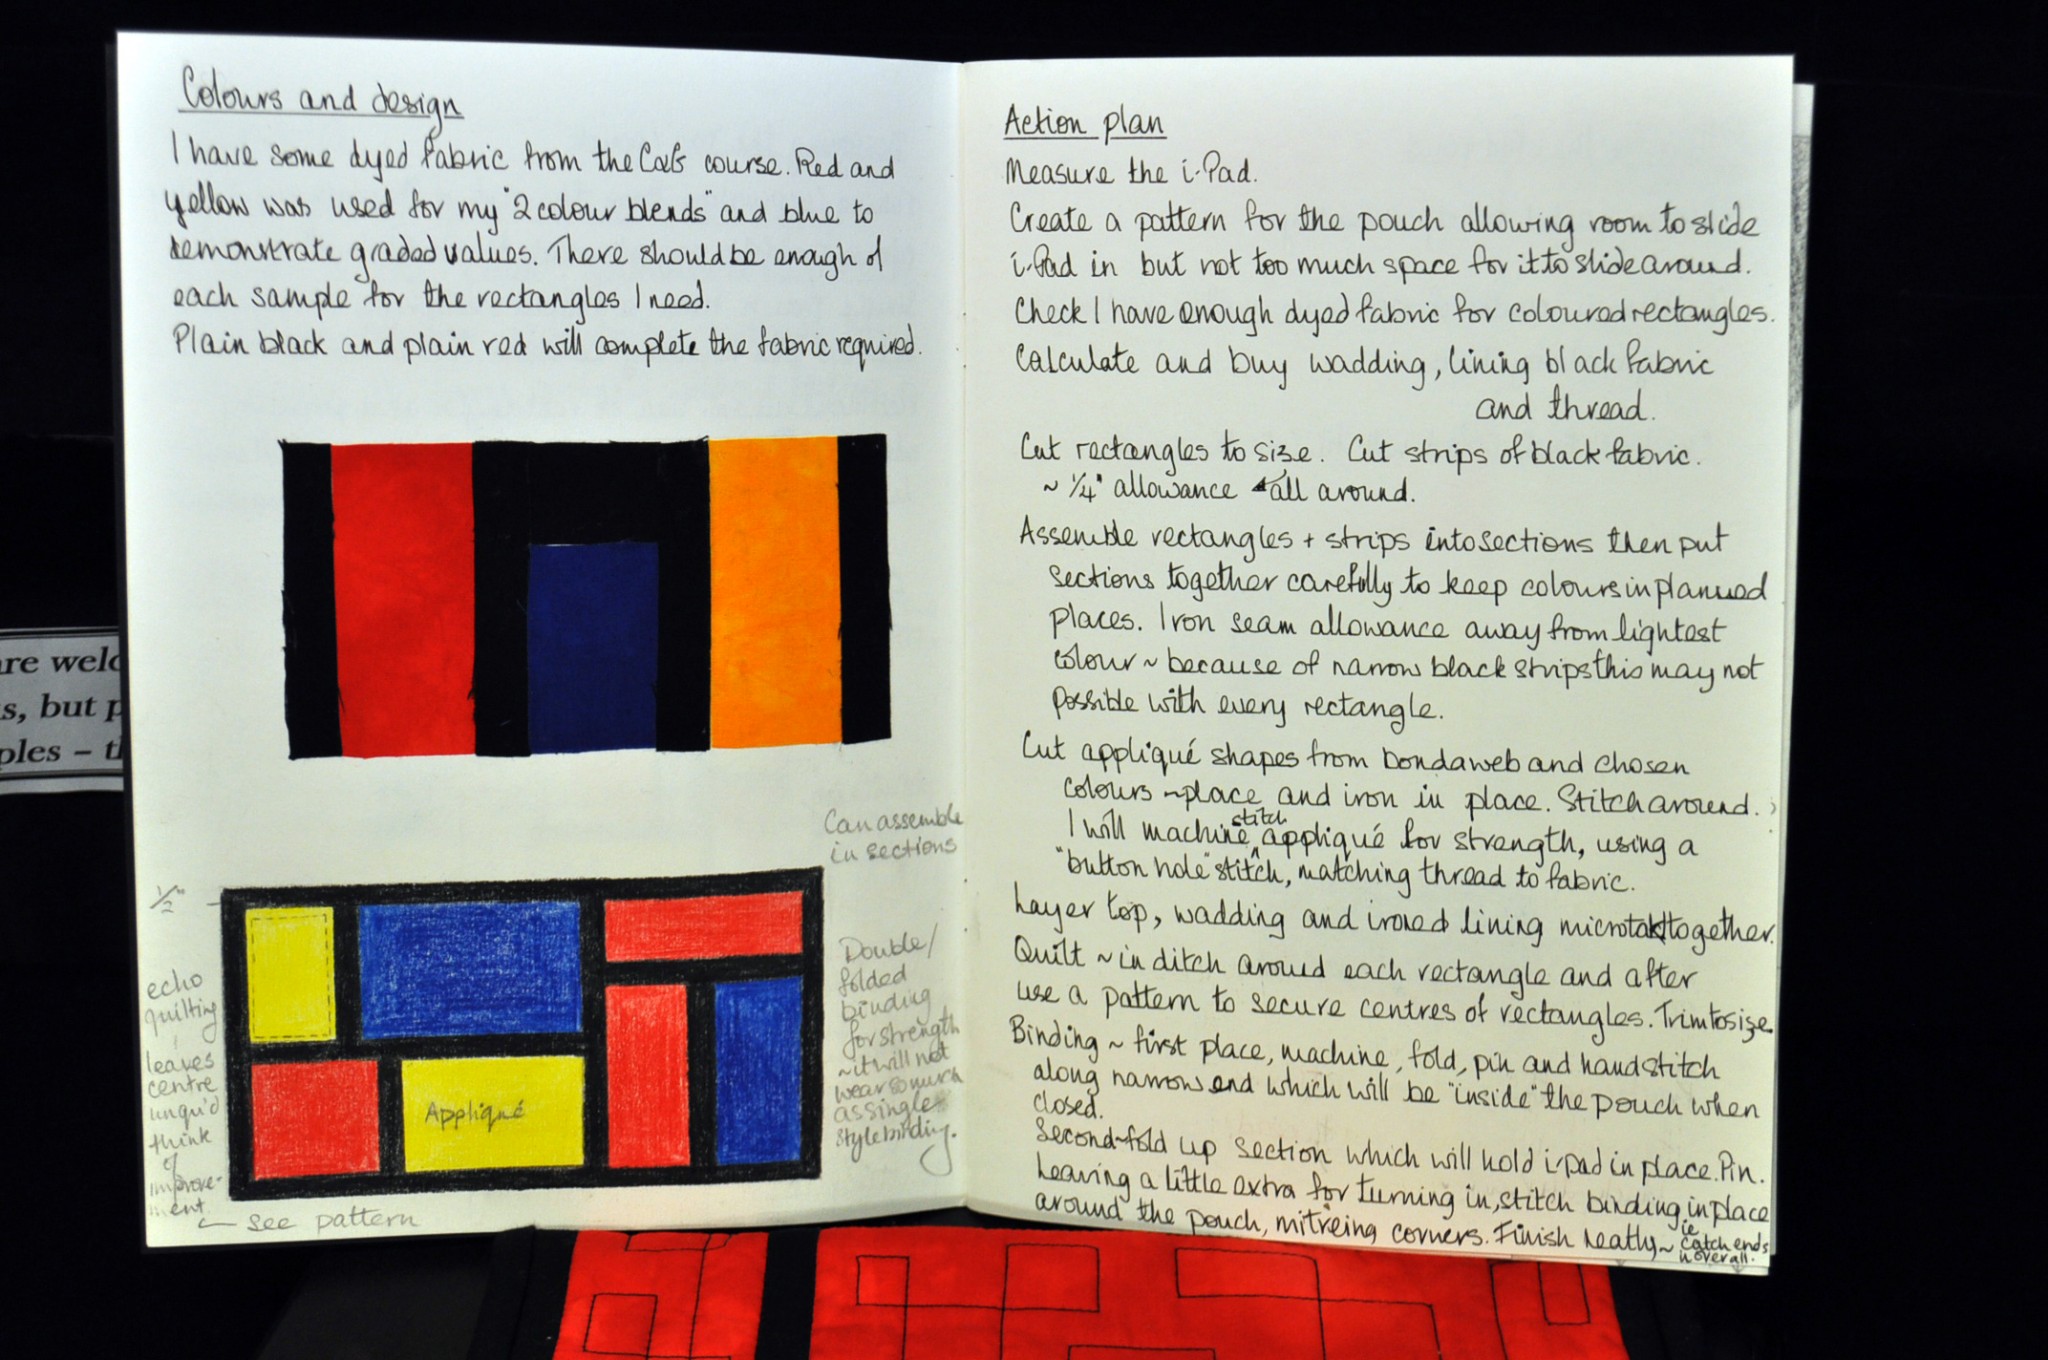 Colours and design
I have some dyed fabric from the C&G course. Red and
yellow was used for my "2 colour blends" and blue to
demonstrate graded values. There should be enough of
each sample for the rectangles I need.
Plain black and plain red will complete the fabric required.
Can assemble
in sections
1/2"
echo
quilting
leaves
centre
unqu'd
think
of
improve-
ment
← see pattern
Appliqué
Double/
folded
binding
for strength
~ it will not
wear so much
as single
style binding.
Action plan
Measure the i-Pad.
Create a pattern for the pouch allowing room to slide
i-Pad in but not too much space for it to slide around.
Check I have enough dyed fabric for coloured rectangles.
Calculate and buy wadding, lining black fabric
and thread.
Cut rectangles to size. Cut strips of black fabric.
~ 1/4" allowance all around.
Assemble rectangles + strips into sections then put
sections together carefully to keep colours in planned
places. Iron seam allowance away from lightest
colour ~ because of narrow black strips this may not
possible with every rectangle.
Cut appliqué shapes from bondaweb and chosen
colours ~ place and iron in place. Stitch around.
I will machine stitch appliqué for strength, using a
"button hole" stitch, matching thread to fabric.
Layer top, wadding and ironed lining microtak together.
Quilt ~ in ditch around each rectangle and after
use a pattern to secure centres of rectangles. Trim to size.
Binding ~ first place, machine, fold, pin and hand stitch
along narrow end which will be "inside" the pouch when
closed.
Second ~ fold up section which will hold i-pad in place. Pin.
Leaving a little extra for turning in, stitch binding in place
around the pouch, mitreing corners. Finish neatly ~ ie
catch ends
n overall.
are welc
s, but p
ples – t